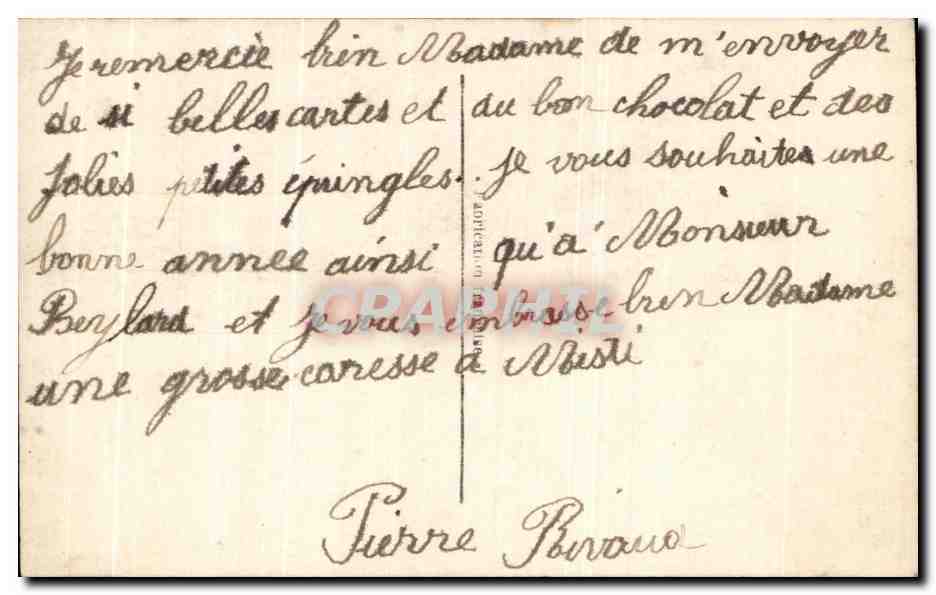 Je remercie bien Madame de m'envoyer
de si belles cartes et du bon chocolat et des
Jolies petites épingles. Je vous souhaites une
bonne annee ainsi qu'a Monsieur
Beylard et je vous embrasse bien Madame
une grosse caresse a Misti
Pierre Rivaud
Fabrication française
CPAPHIL